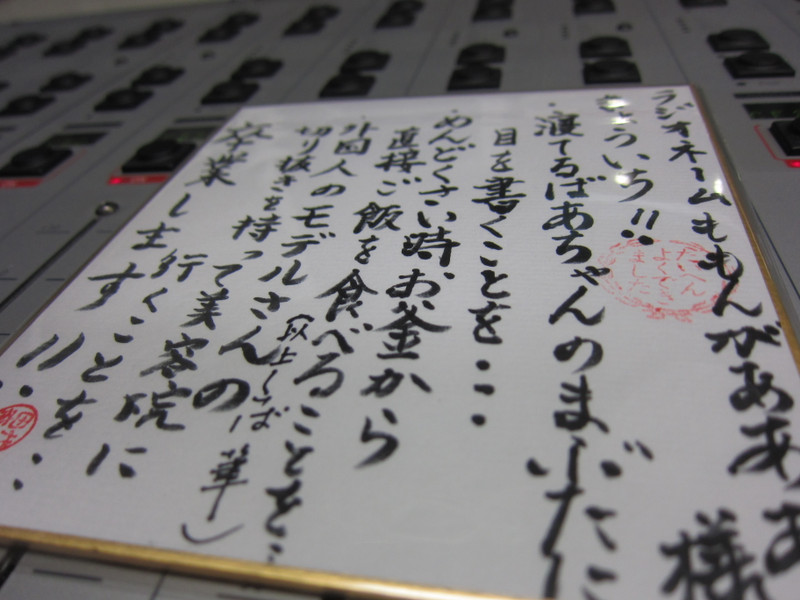 ラジオネームももんがあああ様
きょういち!!
・寝てるばあちゃんのまぶたに
目を書くことを・・・
・めんどくさい時、お釜から
直接ご飯を食べることを・・
・外国人のモデルさんの
切り抜きを持って美容院に
行くことを・・
卒業します!!
(以上くば 華)
たいへん
よくでき
ました